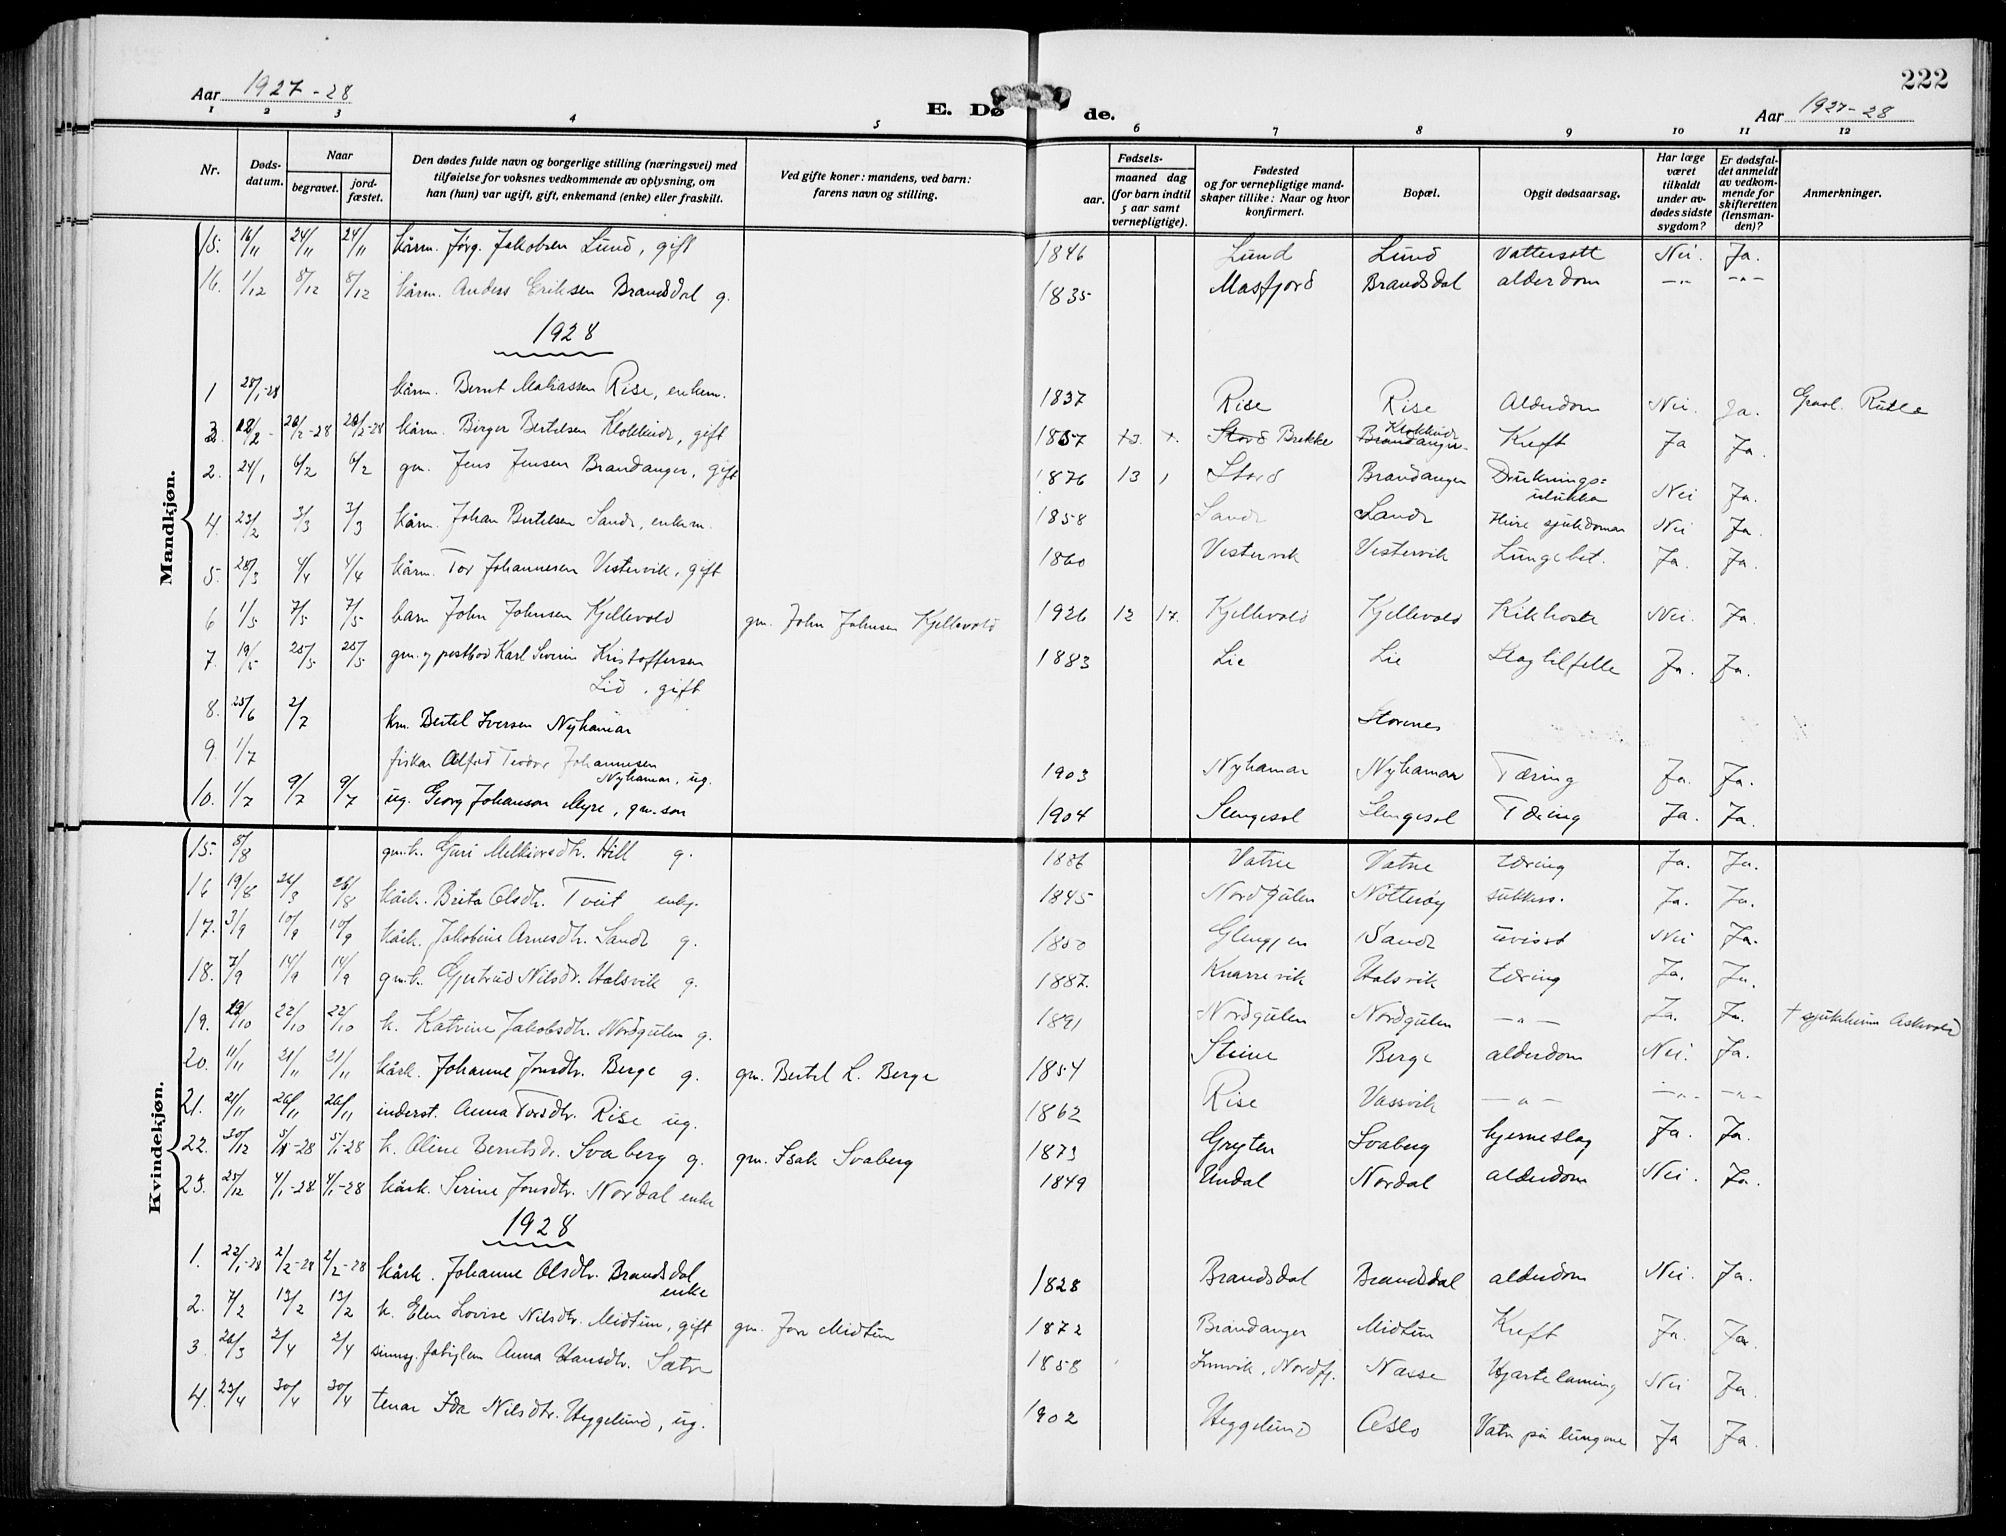 222
Aar 1927-28
E. Døde.
Aar 1927-28
1 2 3 4 5 6 7 8 9 10 11 12
Nr.
Døds-datum.
Naar
begravet.
jord-fæstet.
Den dødes fulde navn og borgerlige stilling (næringsvei) med
tilføielse for voksnes vedkommende av oplysning, om
han (hun) var ugift, gift, enkemand (enke) eller fraskilt.
Ved gifte koner: mandens, ved barn:
farens navn og stilling.
Fødsels-
aar.
maaned dag
(for barn indtil
5 aar samt
vernepligtige).
Fødested
og for vernepligtige mand-
skaper tillike: Naar og hvor
konfirmert.
Bopæl.
Opgit dødsaarsag.
Har læge
været
tilkaldt
under av-
dødes sidste
sygdom?
Er dødsfal-
det anmeldt
av vedkom-
mende for
skifteretten
(lensman-
den)?
Anmerkninger.
Mandkjøn.
15. 16/11 24/11 24/11 kårm. Jörg. Jakobsen Lund, gift 1846 Lund Lund Vattersott Nei. Ja.
16. 1/12 8/12 8/12 kårm. Anders Eriksen Brandsdal g. 1835 Masfjord Brandsdal alderdom —"— —"—
1928
1 28/1-28 kårm. Bernt Rise, enkem. 1837 Rise Rise Alderdom Nei. Ja. Gravl. Rutle
3. 12/2- 20/2-28 20/2-28 kårm. Birger Bertelsen Klokkeide, gift 1857 Stord Brekke Brandanger Klokkeide Kreft Ja Ja.
2. 24/1 6/2 6/2 gm. Jens Jensen Brandanger, gift 1876 13 1 Stord Brandanger Druknings=
ulukka Nei Ja.
4. 23/2 3/3 3/3 kårm. Johan Bertelsen Sande, enkem. 1858 Sande Sande sjukdomar Nei Ja.
5. 28/3 4/4 4/4 kårm. Tor Johannesen Vestervik, gift 1860 Vestervik Vestervik Lungebet. Ja. Ja.
6 1/5 7/5 7/5 barn John Johnsen Kjellevold gm. John Johnsen Kjellevold 1926 12 17. Kjellevold Kjellevold Kikhoste Nei. Ja.
7. 19/5 25/5 25/5 gm. og postbod Karl Severin Kristoffersen
Lid, gift 1883 Lie Lie Slagtilfelle Ja. Ja.
8. 25/6 2/7 km. Bertel Iversen Nyhamar Storenes
9. 1/7 fiskar Alfred Teodor Johannesen
Nyhamar, ug. 1903 Nyhamar Nyhamar Tæring Ja. Ja.
10. 1/7 9/7 9/7 ug. Georg Johanson Myre, gm. son 1904 Slengesol Slengesol Tæring Ja. Ja.
Kvindekjøn.
15. 8/8 gm.k. Guri Melkiorsdtr. Hill g. 1886 Vatne Vatne tæring Ja. Ja.
16 19/8 26/8 26/8 kårk. Brita Olsdtr. Tveit enkj. 1845 Nordgulen Nötteröy sukkers. Ja. Ja.
17. 3/9 10/9 10/9 kårk. Jakobine Arnesdtr. Sande g. 1850 Glengjen Sande uvisst Nei Ja.
18. 7/9 14/9 14/9 gm.k. Gjertrud Nilsdr. Halsvik g. 1887. Knarrevik Halsvik tæring Ja. Ja.
19. 22/10 22/10 k. Katrine Jakobsdtr. Nordgulen g. 1891 Nordgulen Nordgulen —"— Ja. Ja. † sjukheim Askvold
20. 11/11 21/11 21/11 kårk. Johanne Jonsdtr. Berge g. gm. Bertel L. Berge 1854 Steine Berge alderdom Nei. Ja.
21. 21/11 26/11 26/11 inderst. Anna Torsdtr. Rise ug. 1862 Rise Vassvik —"— —"— —"—
22. 30/12 5/1-28 5/1-28 k. Oline Berntsdr. Svaberg g. gm. Isak Svaberg 1873 Gryten Svaberg hjerneslag Ja. Ja.
23. 25/12 4/1-28 4/1-28 kårk. Serine Jonsdtr. Nordal enke 1849 Undal Nordal alderdom Nei. Ja.
1928
1. 22/1-28 2/2-28 2/2-28 kårk. Johanne Olsdtr. Brandsdal
enke 1828 Brandsdal Brandsdal alderdom Nei. Ja.
2. 7/2 13/2 13/2 k. Elen Lovise Nilsdtr. Midtun, gift gm. Jon Midtun 1872 Brandanger Midtun Kreft Ja. Ja.
3. 26/3 2/4 2/4 Anna Hansdtr. Sætre 1858 Innvik, Nordfj. Nasse Hjartelaming Nei Ja.
4. 23/4 30/4 30/4 tenar Ida Nilsdtr. Hyggelund, ug. 1902 Hyggelund Oslo Vatn på lungene Ja Ja.